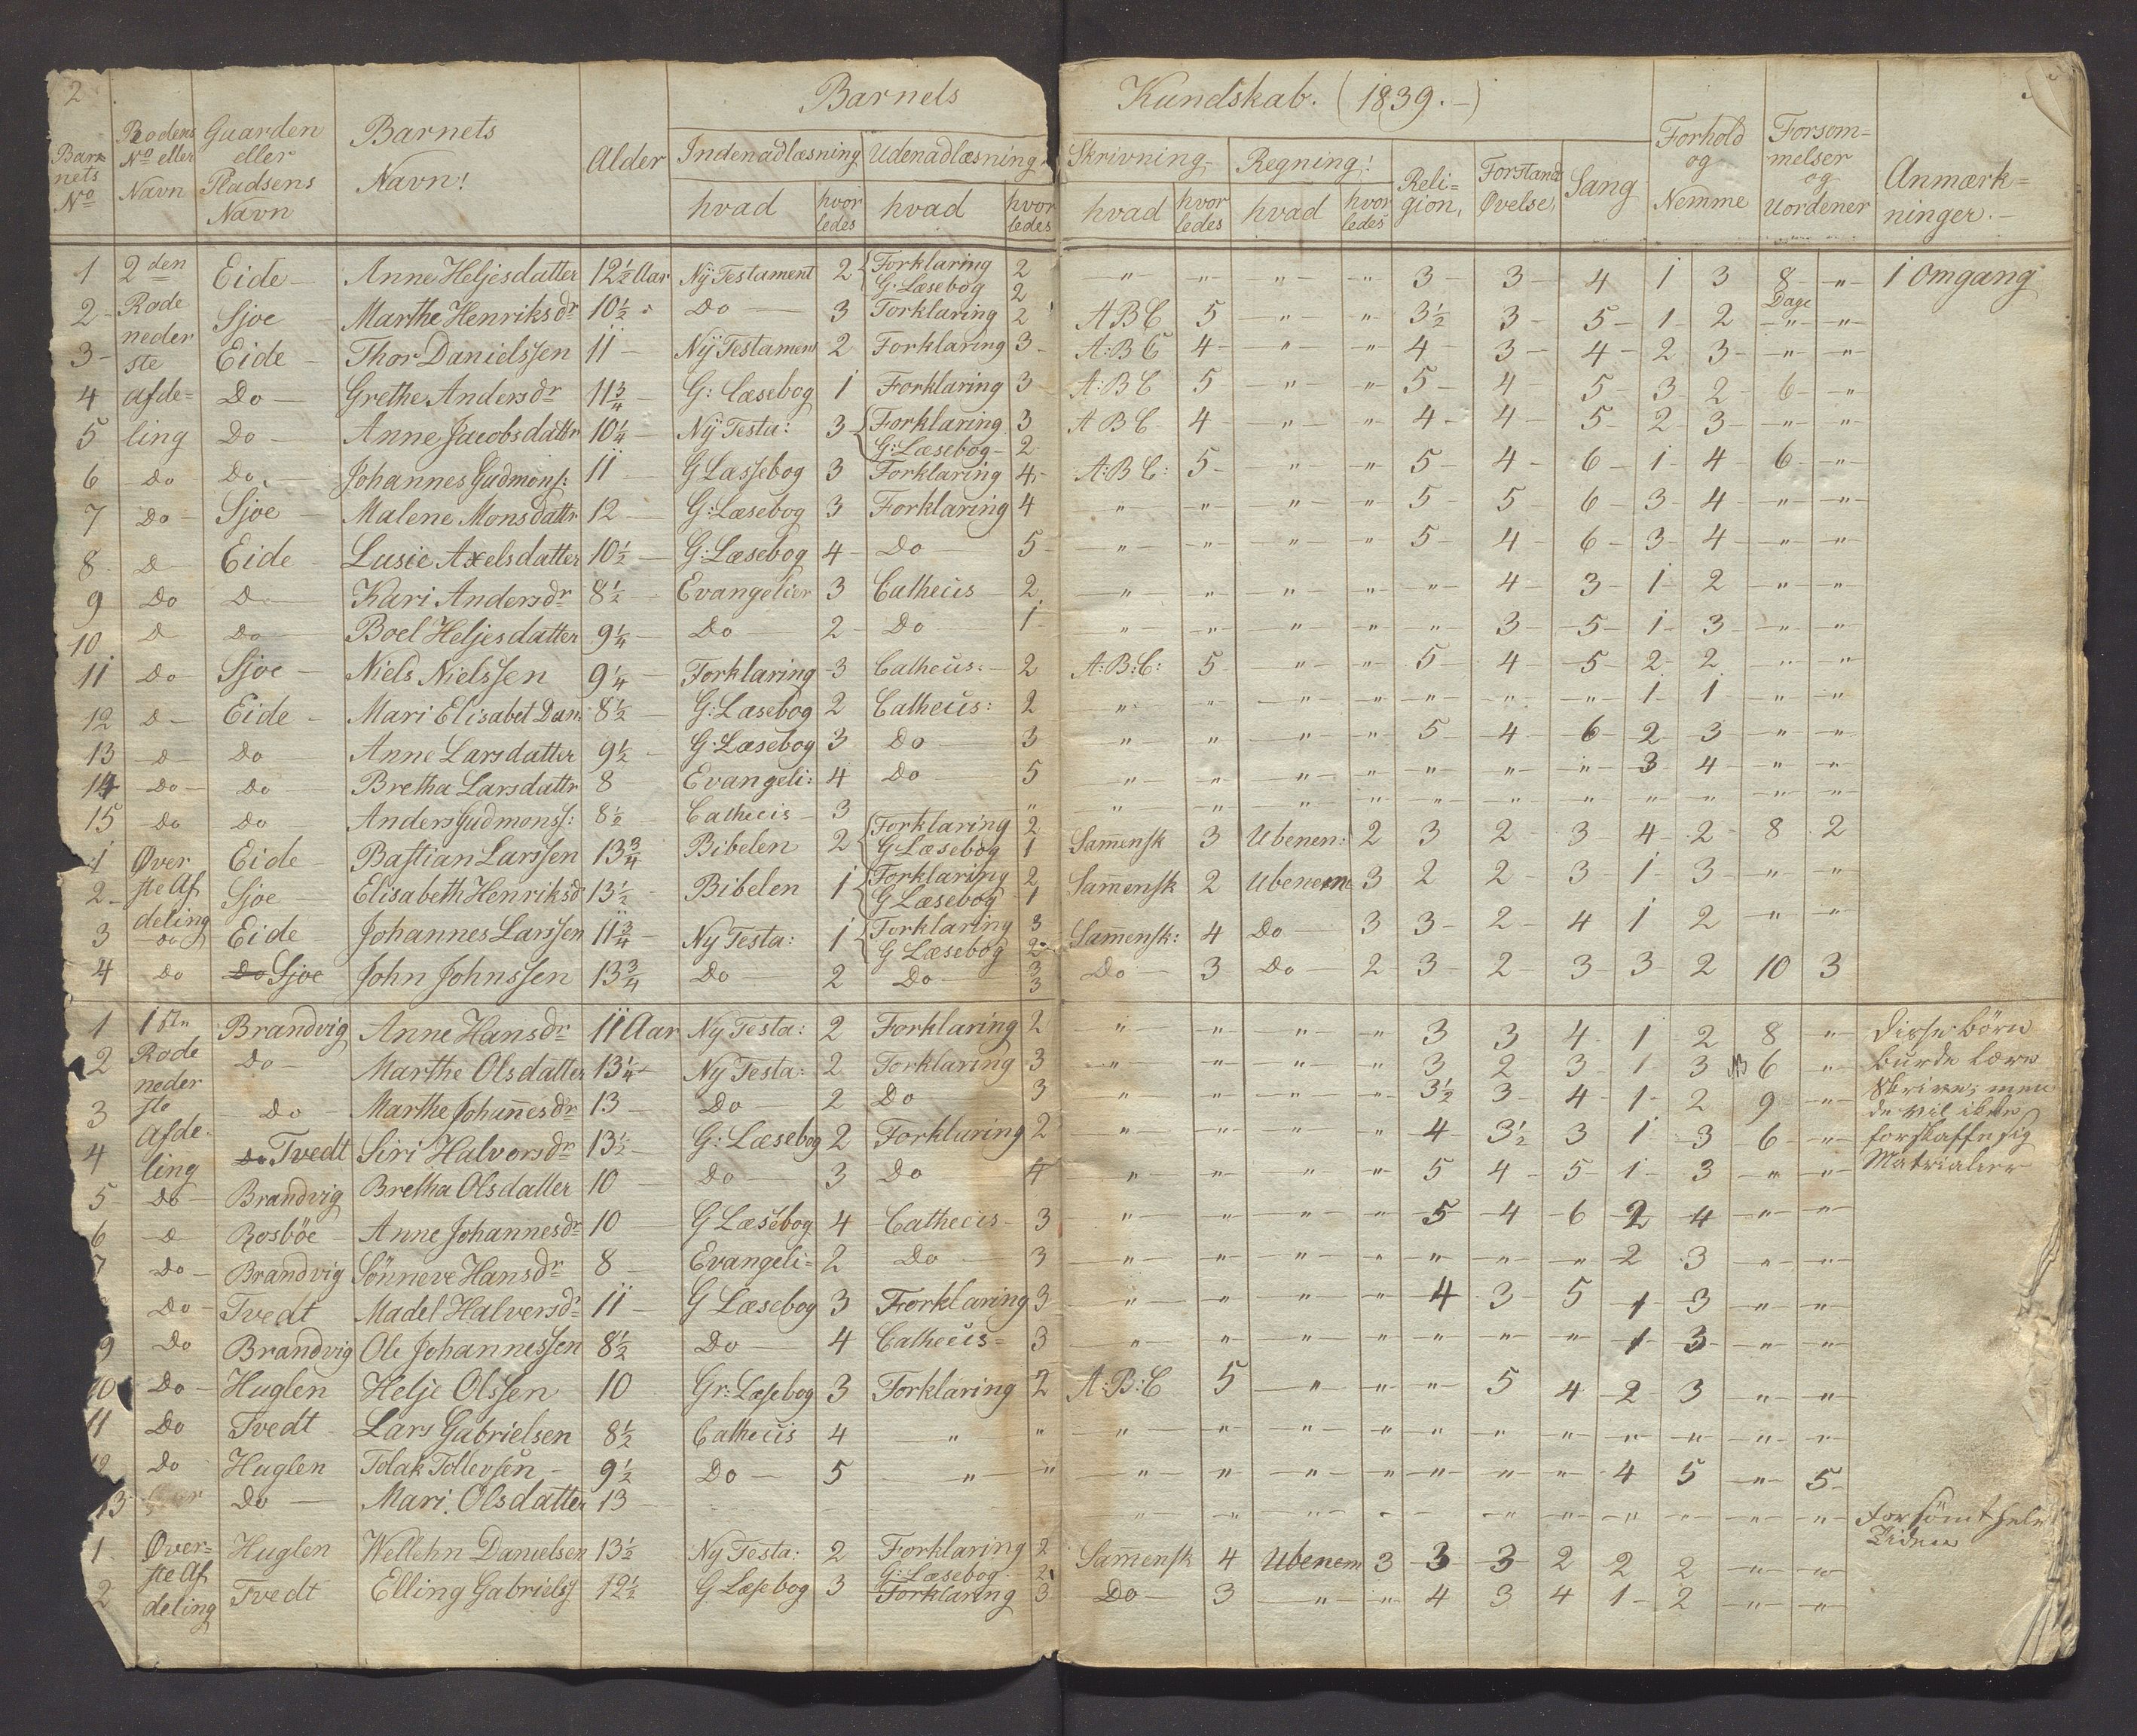 2
Barnets Kundskab. (1839.-)
Barnets No | Rodens No eller Navn | Guarden eller Pladsens Navn | Barnets Navn! | Alder | Indenadlæsning hvad | hvorledes | Udenadlæsning hvad | hvorledes | Skrivning hvad | hvorledes | Regning! hvad | hvorledes | Religion, | Forstands Øvelse, | Sang | Forhold og Nemme | Forsommelser og Uordener | Anmærkninger.-
1 | 2den | Eide | Anne Heljesdatter | 12½ Aar | Ny Testament | 2 | Forklaring G: Læsebog | 2 2 | " | " | " | " | 3 | 3 | 4 | 1 | 3 | 8 Dage | " | 1 Omgang
2 | Rode | Sjoe | Marthe Henriksdr | 10½ | Do | 3 | Forklaring | 2 | ABC | 5 | " | " | 3½ | 3 | 5 | 1 | 2 | " | "
3 | nederste | Eide | Thor Danielssen | 11 | Ny Testament | 2 | Forklaring | 3 | A:BC | 4 | " | " | 4 | 3 | 4 | 2 | 3 | " | "
4 | afde= | Do | Grethe Andersdr | 11¾ | G: Læsebog | 1 | Forklaring | 3 | A:BC | 5 | " | " | 5 | 4 | 5 | 3 | 2 | 6 | "
5 | ling | Do | Anne Jacobsdattr | 10¼ | Ny Testa: | 3 | Forklaring G: Læsebog | 3 2 | ABC | 4 | " | " | 4 | 4 | 5 | 2 | 3 | " | "
6 | do | Do | Johannes Gudmons: | 11 | G Læssebog | 3 | Forklaring | 4 | A:BC: | 5 | " | " | 5 | 4 | 6 | 1 | 4 | 6 | "
7 | Do | Sjoe | Malene Monsdattr | 12 | G: Læsebog | 3 | Forklaring | 4 | " | " | " | " | 5 | 5 | 6 | 3 | 4 | " | "
8 | D | Eide | Lusie Axelsdatter | 10½ | G: Læsebog | 4 | Do | 5 | " | " | " | " | 5 | 4 | 6 | 3 | 4 | " | "
9 | Do | D | Kari Andersdr | 8½ | Evangelier | 3 | Cathecis | 2 | " | " | " | " | " | 4 | 3 | 1 | 2 | " | "
10 | D | Do | Boel Heljesdatter | 9¼ | Do | 2 | Do | 1 | " | " | " | " | " | 3 | 5 | 1 | 3 | " | "
11 | Do | Sjoe | Niels Nielssen | 9¼ | Forklaring | 3 | Cathecis: | 2 | A:B:C: | 5 | " | " | 5 | 4 | 5 | 2 | 2 | " | "
12 | D | Eide | Mari Elisabet Dan: | 8½ | G: Læsebog | 2 | Cathecis: | 2 | " | " | " | " | " | " | " | 1 | 1 | " | "
13 | D | Do | Anne Larsdatter | 9½ | G: Læsebog | 3 | Do | 3 | " | " | " | " | 5 | 4 | 6 | 2 | 3 | " | "
14 | Do | Do | Bretha Larsdattr | 8 | Evangeli: | 4 | Do | 5 | " | " | " | " | " | " | " | 3 | 4 | " | "
15 | Do | Do | Anders Gudmonss: | 8½ | Cathecis | 3 | | " | " | " | " | " | " | " | " | " | " | " | "
1 | Øver | Eide | Bastian Larssen | 13¾ | Bibelen | 2 | Forklaring G Læsebog | 2 1 | Sammensk | 3 | Ubenen: | 2 | 3 | 2 | 3 | 4 | 2 | 8 | 2
2 | ste Af | Sjoe | Elisabeth Henriksd | 13½ | Bibelen | 1 | Forklaring G Læsebog | 2 1 | Sammensk | 2 | Ubenem | 3 | 2 | 2 | 3 | 1 | 3 | " | "
3 | deling do | Eide | Johannes Larssen | 11¾ | Ny Testa: | 1 | Forklaring G Læsebog | 3 2 | Sammensk: | 4 | Do | 3 | 3 | 2 | 4 | 1 | 2 | " | "
4 | do | Do Sjoe | John Johnssen | 13¾ | Do | 2 | Do | 3 3 | Do | 3 | Do | 2 | 3 | 2 | 3 | 3 | 2 | 10 | 3
1 | 1ste | Brandvig | Anne Hansdr | 11 Aar | Ny Testa: | 2 | Forklaring | 2 | " | " | " | " | 3 | 3 | 4 | 1 | 2 | 8 | " | Disse börn
2 | Rode | Do | Marthe Olsdatter | 13¼ | Ny Testa: | 2 | Forklaring | 3 | " | " | " | " | 3 | 2 | 3 | 1 | 3 | 6 | " | burde lære
3 | nederste | Do | Marthe Johannesdr | 13 | Do | 2 | Do | 3 | " | " | " | " | 3½ | 3 | 4 | 1 | 2 | 9 | " | Skrive; men de vil ikke
4 | Afdeling | Do Tvedt | Siri Halvorsdr | 13½ | G: Læsebog | 2 | Forklaring | 2 | " | " | " | " | 4 | 3½ | 3 | 1 | 3 | 6 | " | forskaffe sig
5 | Do | Brandvig | Bretha Olsdatter | 10 | Do | 3 | Do | 4 | " | " | " | " | 5 | 4 | 5 | 1 | 3 | " | " | Matrialier
6 | D | Rosböe | Anne Johannesdr | 10 | G Læsebog | 4 | Cathecis | 3 | " | " | " | " | 5 | 4 | 6 | 2 | 4 | " | "
7 | Do | Brandvig | Sönneve Hansdr | 8 | Evangeli= | 2 | Do | 3 | " | " | " | " | " | " | " | 2 | 3 | " | "
Do | Tvedt | Madel Halversdr | 11 | G Læsebog | 3 | Forklaring | 3 | " | " | " | " | 4 | 3 | 5 | 1 | 3 | " | "
9 | Do | Brandvig | Ole Johannessen | 8½ | Do | 4 | Cathecis= | 3 | " | " | " | " | " | " | " | 1 | 3 | " | "
10 | Do | Huglen | Helje Olssen | 10 | Gr: Læsebog | 3 | Forklaring | 2 | A:B:C | 5 | " | " | " | 5 | 4 | 2 | 3 | " | "
11 | Do | Tvedt | Lars Gabrielsen | 8½ | Cathecis | 4 | " | " | " | " | " | " | " | " | " | " | " | " | "
12 | Do | Huglen | Tolak Tollevsen | 9½ | Do | 5 | " | " | " | " | " | " | " | " | " | 4 | 5 | " | 5
13 | Do | Mari Olsdatter | 13 | " | " | " | " | " | " | " | " | " | " | " | Forsömt hele Tiden
1 | Øver= | Huglen | Wellehn Danielsen | 13½ | Ny Testa: | 2 | Forklaring G: Læsebog | 2 2 | Sammensk | 4 | Ubenem | 3 | 3 | 3 | 2 | 2 | 2 | " | "
2 | ste Afdeling | Tvedt | Elling Gabriels | 12½ | G Læsebog | 3 | Forklaring | 3 | Do | 3 | " | " | 4 | 3 | 4 | 1 | 2 | " | "